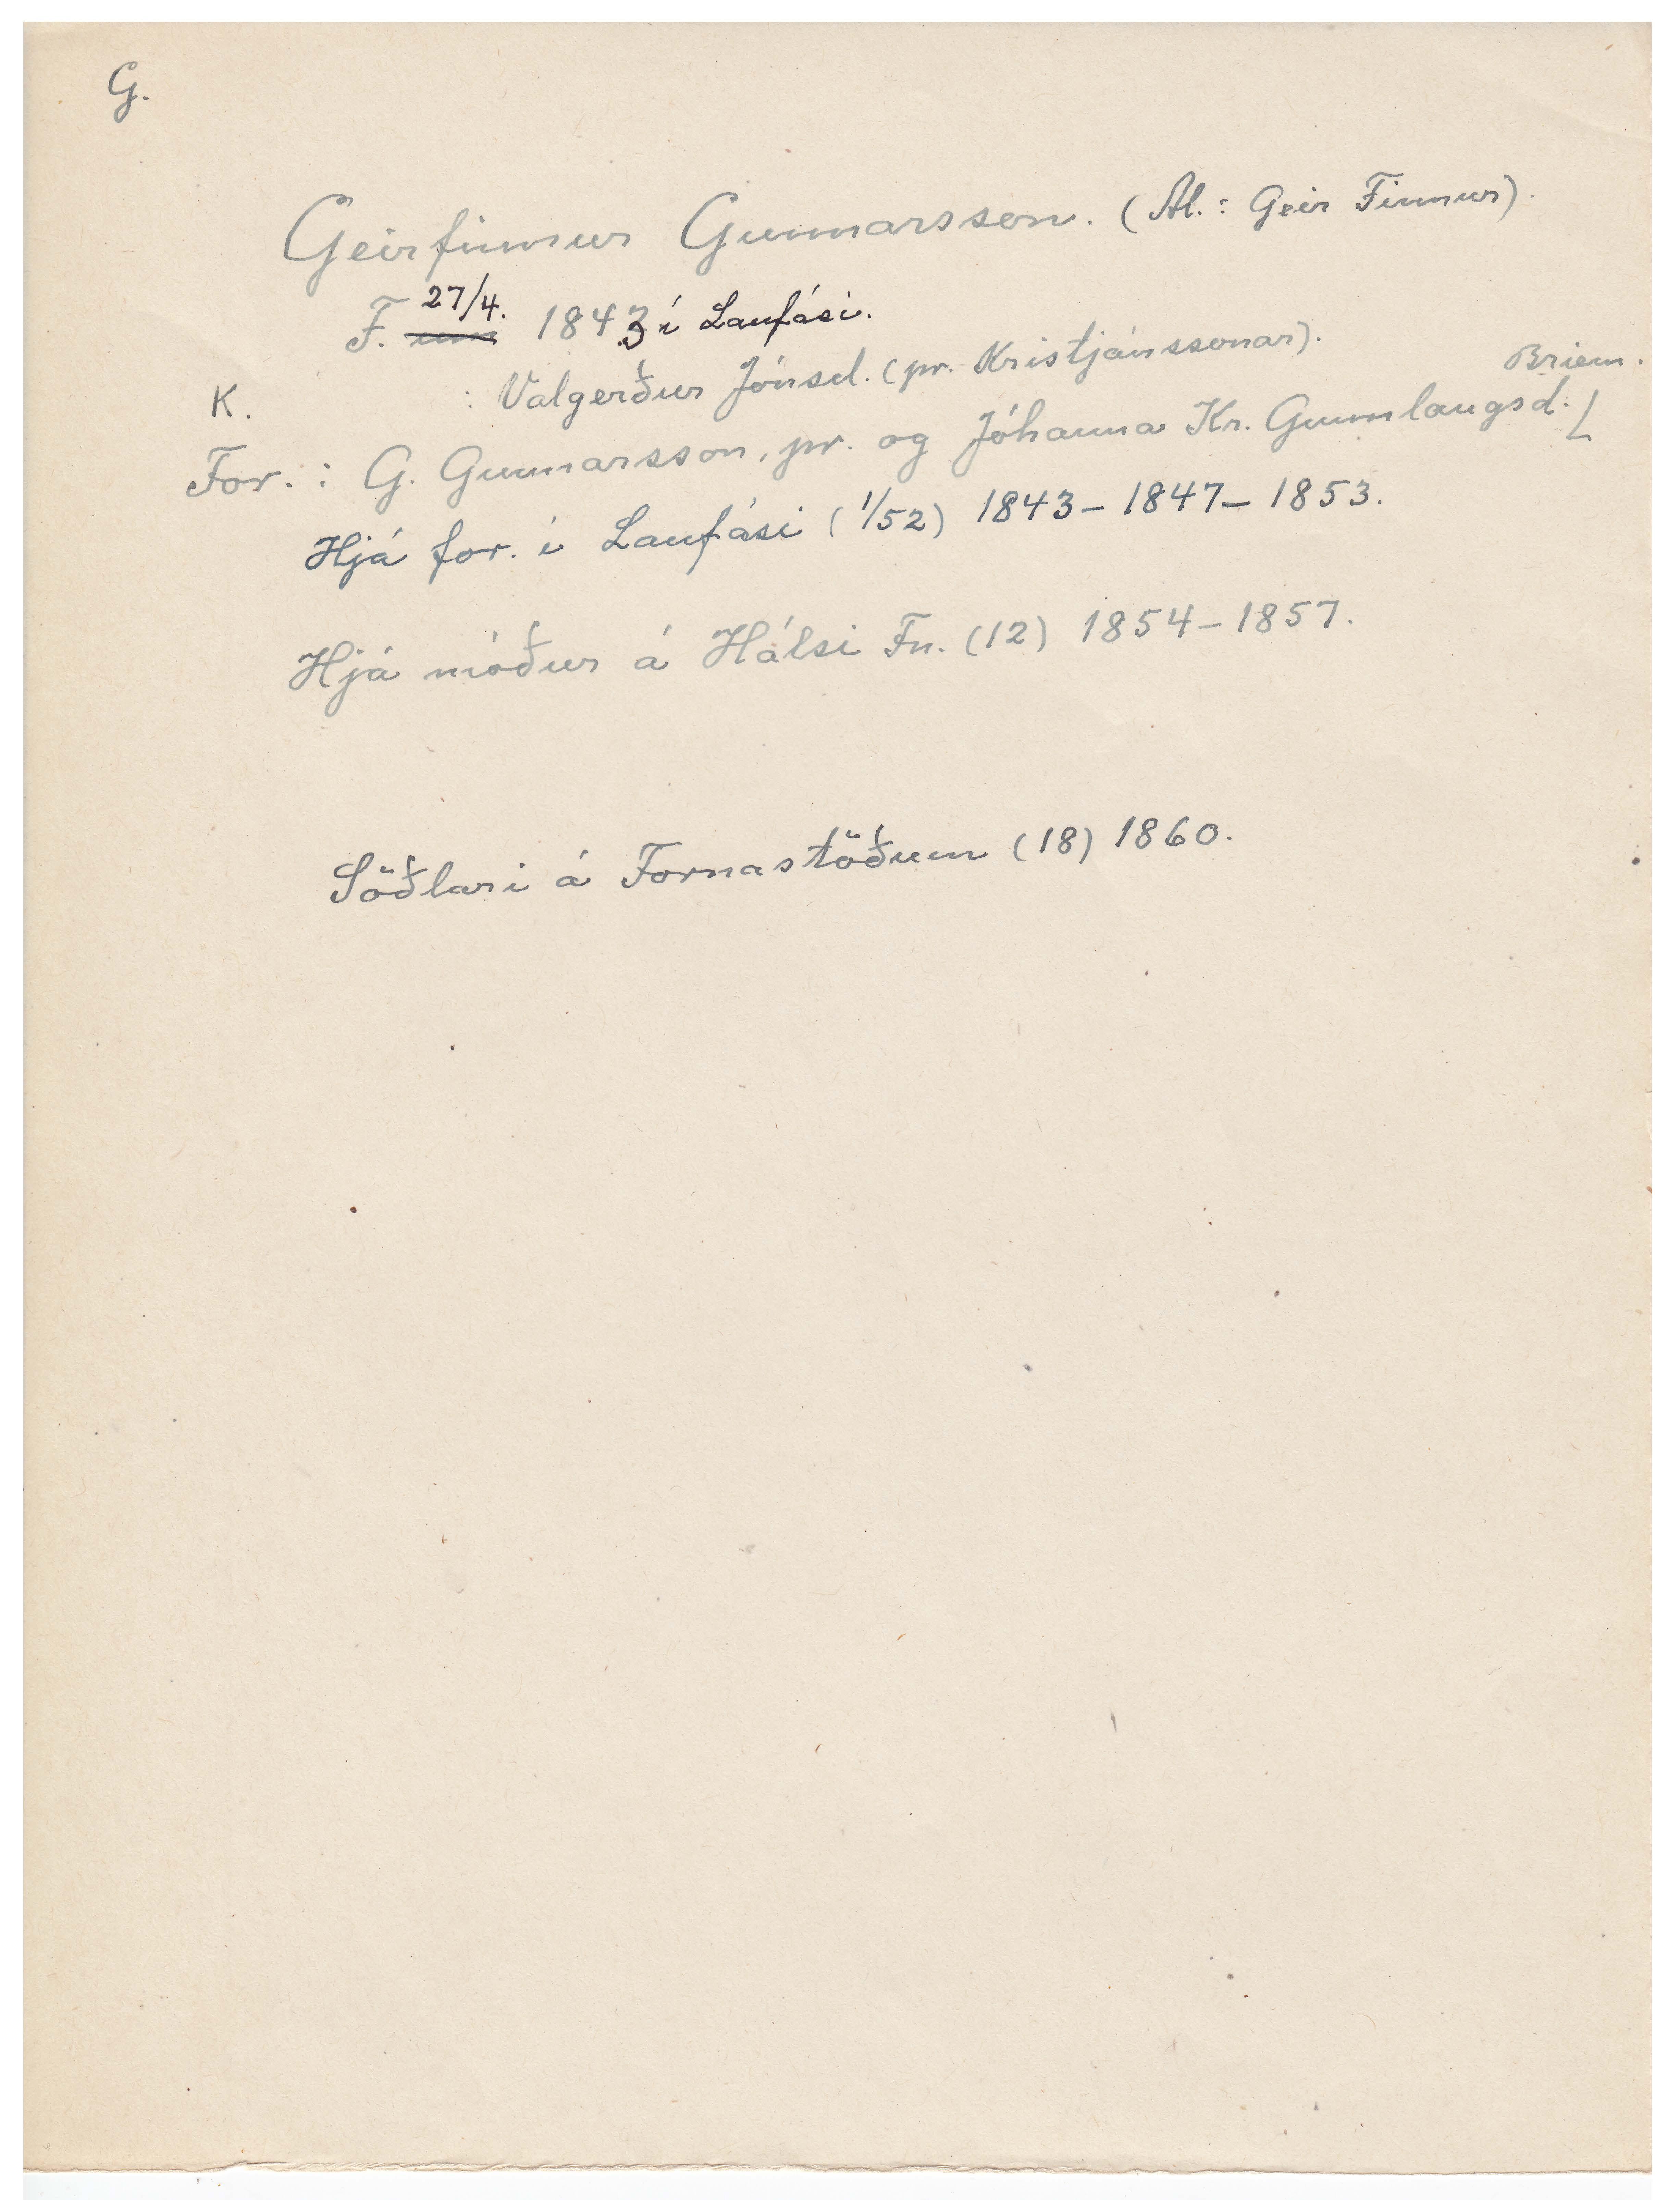 G.
Geirfinnur Gunnarsson. (Al.: Geir Finnur).
F. 27/4. 1843 í Laufási.
K. : Valgerður Jónsd. (pr. Kristjánssonar).
For. : G. Gunnarsson, pr. og Jóhanna Kr. Gunnlaugsd. Briem.
Hjá for. í Laufási (1/52) 1843 – 1847 – 1853.
Hjá móður á Hálsi Fn. (12) 1854 – 1857.
Söðlari á Fornastöðum (18) 1860.